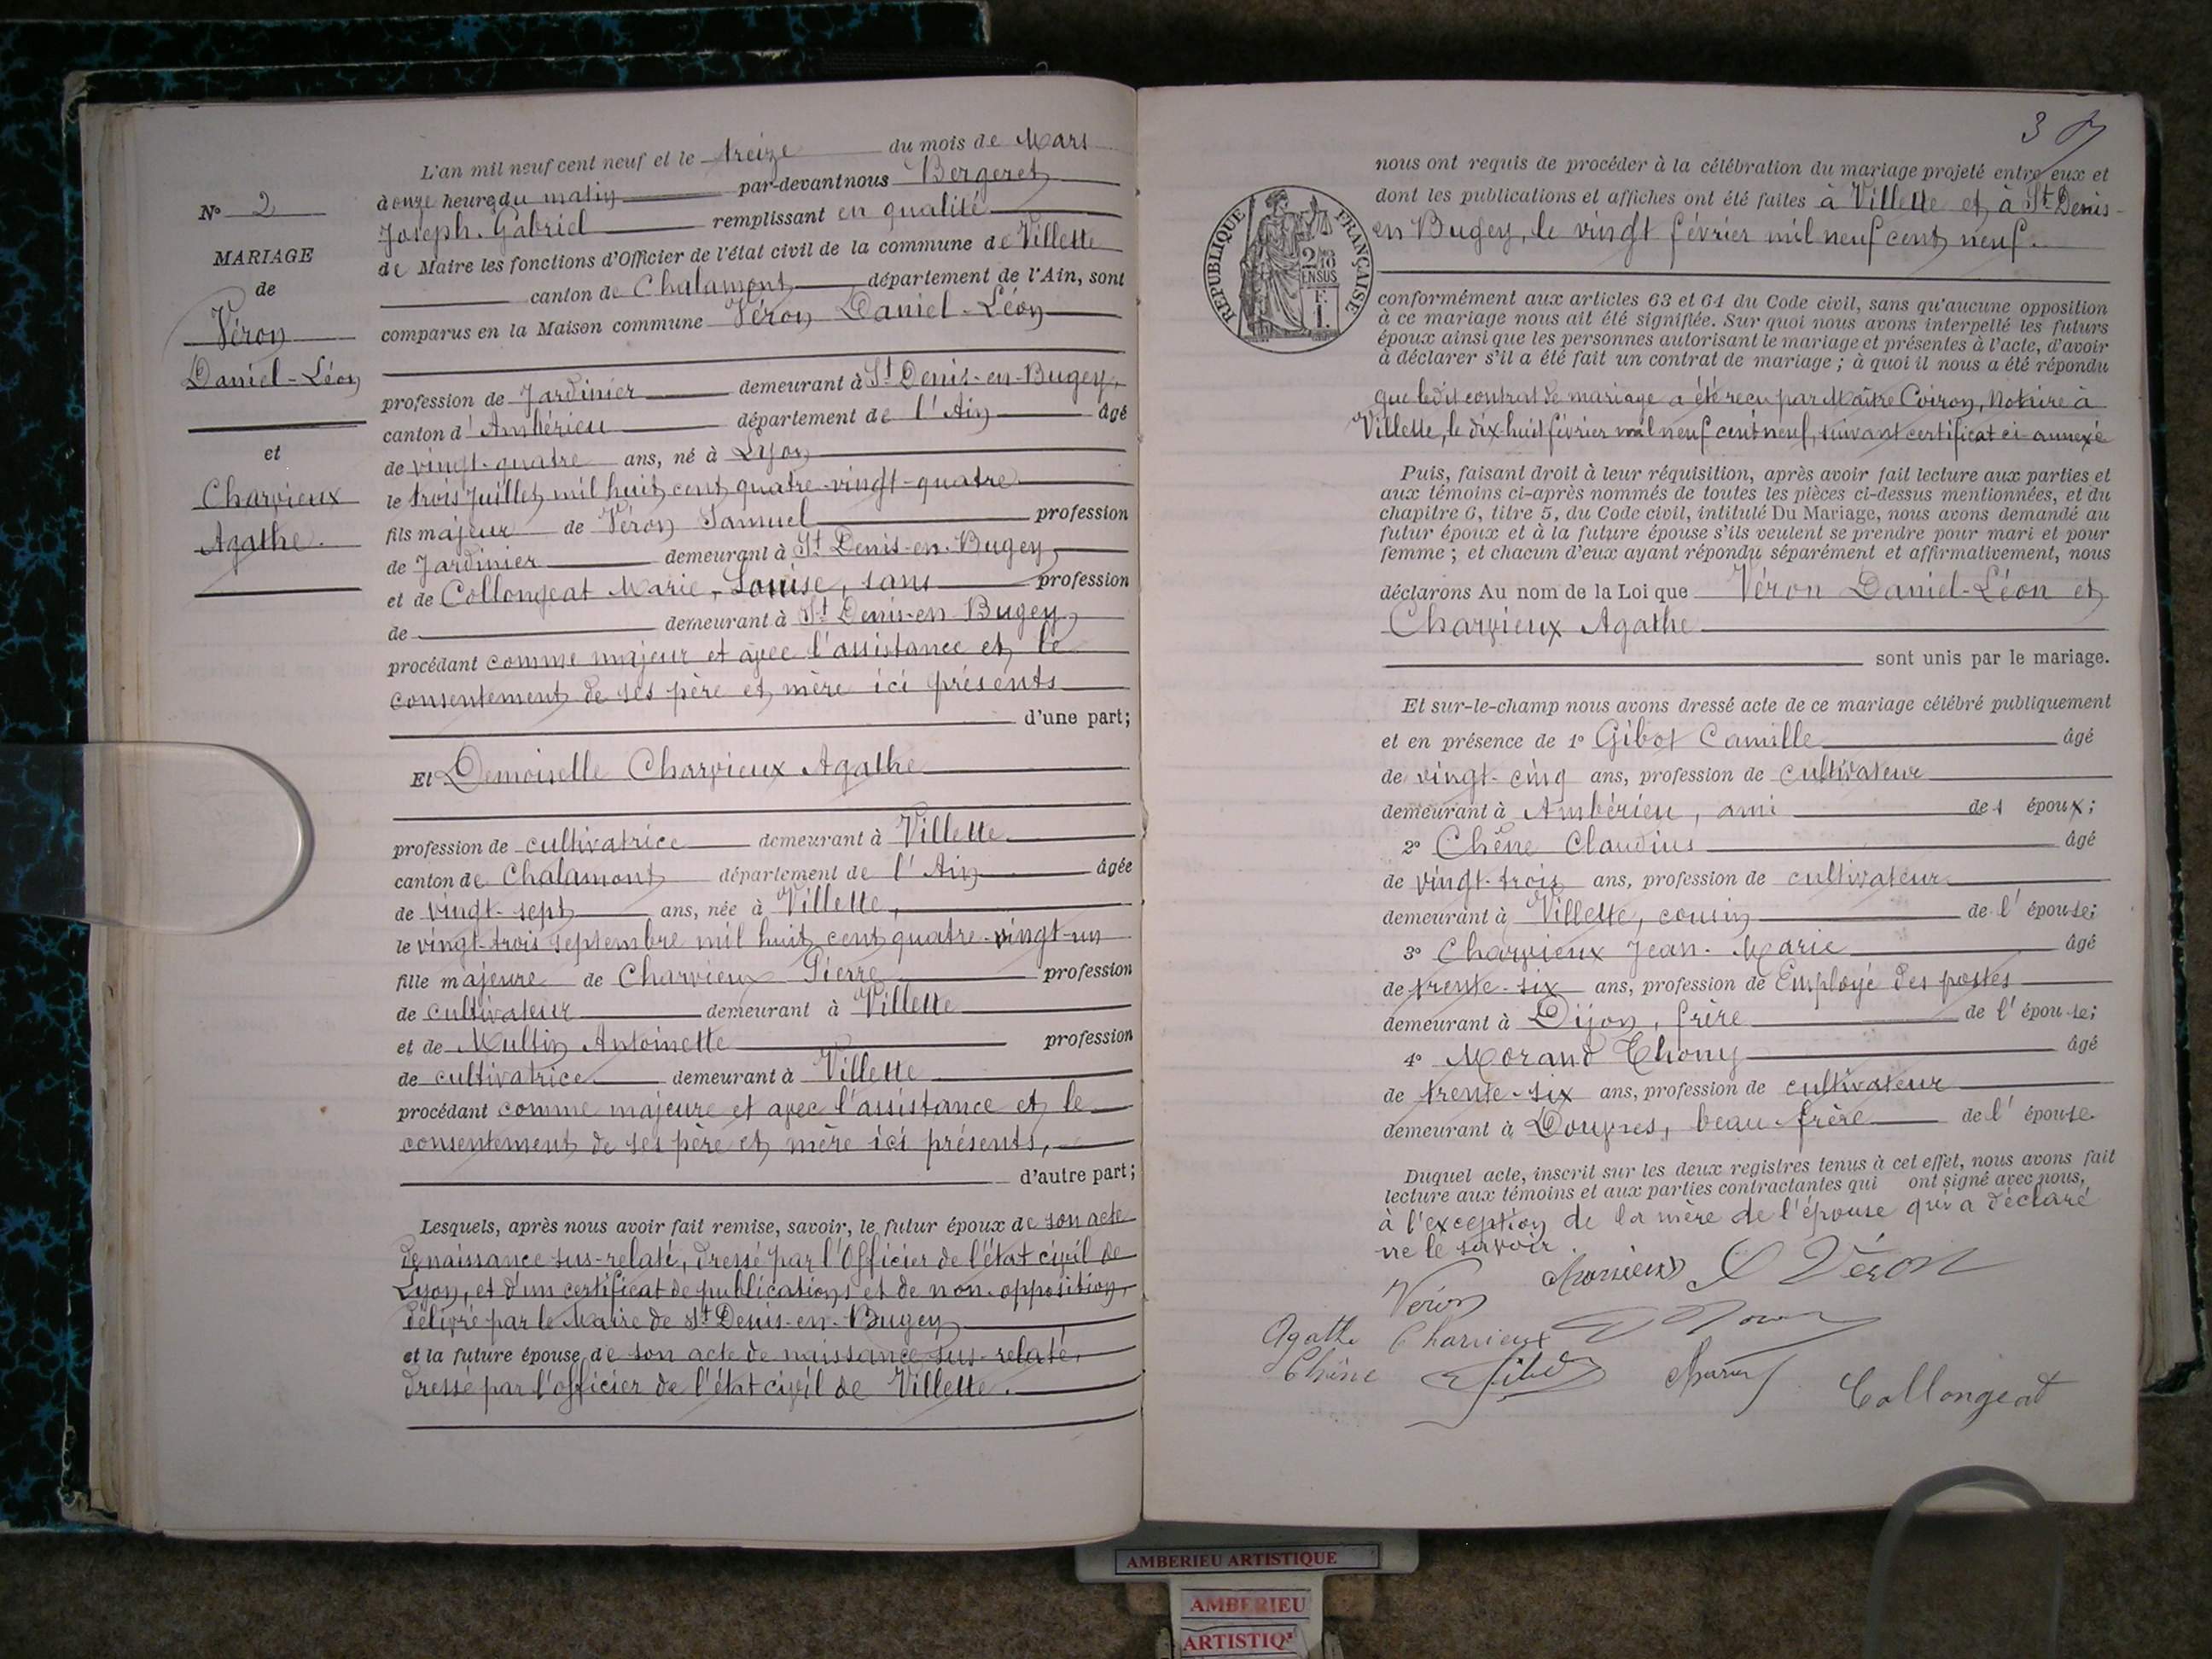 N° 2
MARIAGE
de
Véron
Daniel-Léon
et
Charvieux
Agathe.
L'an mil neuf cent neuf et le treize du mois de Mars
à onze heures du matin par-devant nous Bergeret
Joseph-Gabriel remplissant en qualité
de Maire les fonctions d'Officier de l'état civil de la commune de Villette
canton de Chalamont département de l'Ain, sont
comparus en la Maison commune Véron Daniel-Léon
profession de Jardinier demeurant à St Denis-en-Bugey,
canton d'Ambérieu département de l'Ain âgé
de vingt-quatre ans, né à Lyon
le trois Juillet mil huit cent quatre-vingt-quatre
fils majeur de Véron Samuel profession
de Jardinier demeurant à St Denis-en-Bugey
et de Collongeat Marie-Louise, sans profession
de demeurant à St Denis-en-Bugey
procédant comme majeur et avec l'assistance et le
consentement de ses père et mère ici présents
d'une part;
Et Demoiselle Charvieux Agathe
profession de cultivatrice demeurant à Villette
canton de Chalamont département de l'Ain âgée
de vingt-sept ans, née à Villette,
le vingt-trois septembre mil huit cent quatre-vingt-un
fille majeure de Charvieux Pierre profession
de cultivateur demeurant à Villette
et de Multin Antoinette profession
de cultivatrice demeurant à Villette
procédant comme majeure et avec l'assistance et le
consentement de ses père et mère ici présents,
d'autre part;
Lesquels, après nous avoir fait remise, savoir, le futur époux de son acte
de naissance sus-relaté, dressé par l'Officier de l'état civil de
Lyon, et d'un certificat de publications et de non-opposition,
délivré par le Maire de St Denis-en-Bugey
et la future épouse de son acte de naissance sus-relaté,
dressé par l'officier de l'état civil de Villette.
3
REPUBLIQUE FRANÇAISE
2/10
EN SUS
F.
1.
nous ont requis de procéder à la célébration du mariage projeté entre eux et
dont les publications et affiches ont été faites à Villette et à St Denis-
en Bugey, le vingt février mil neuf cent neuf.
conformément aux articles 63 et 64 du Code civil, sans qu'aucune opposition
à ce mariage nous ait été signifiée. Sur quoi nous avons interpellé les futurs
époux ainsi que les personnes autorisant le mariage et présentes à l'acte, d'avoir
à déclarer s'il a été fait un contrat de mariage ; à quoi il nous a été répondu
que ledit contrat de mariage a été reçu par Maître Coiron, Notaire à
Villette, le dix huit février mil neuf cent neuf, suivant certificat ci-annexé
Puis, faisant droit à leur réquisition, après avoir fait lecture aux parties et
aux témoins ci-après nommés de toutes les pièces ci-dessus mentionnées, et du
chapitre 6, titre 5, du Code civil, intitulé Du Mariage, nous avons demandé au
futur époux et à la future épouse s'ils veulent se prendre pour mari et pour
femme ; et chacun d'eux ayant répondu séparément et affirmativement, nous
déclarons Au nom de la Loi que Véron Daniel-Léon et
Charvieux Agathe
sont unis par le mariage.
Et sur-le-champ nous avons dressé acte de ce mariage célébré publiquement
et en présence de 1° Gibot Camille âgé
de vingt-cinq ans, profession de cultivateur
demeurant à Ambérieu, ami de l époux;
2° Chêne Claudius âgé
de vingt-trois ans, profession de cultivateur
demeurant à Villette, cousin de l'épouse;
3° Charvieux Jean-Marie âgé
de trente-six ans, profession de Employé des postes
demeurant à Dijon, frère de l'épouse;
4° Morand Thony âgé
de trente-six ans, profession de cultivateur
demeurant à Douvres, beau-frère de l'épouse.
Duquel acte, inscrit sur les deux registres tenus à cet effet, nous avons fait
lecture aux témoins et aux parties contractantes qui ont signé avec nous,
à l'exception de la mère de l'épouse qui a déclaré
ne le savoir.
Véron Charvieux Véron
Agathe Charvieux
Chêne Gibot Collongeat
AMBERIEU ARTISTIQUE
AMBERIEU
ARTISTIQ